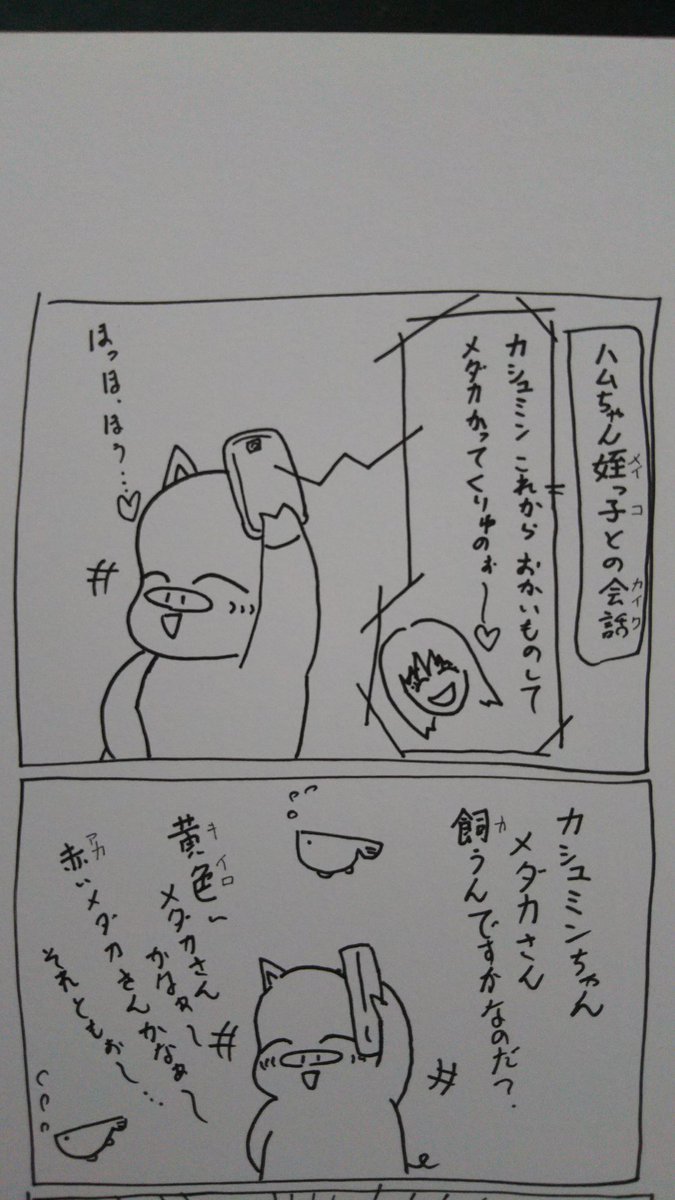 ハムちゃん姪っ子との会話
メイ コ カイワ
カシュミン これから おかいものして
メダカかってくりゅのぉ〜♡
ほっほ、ほう…♡
カシュミンちゃん
メダカさん
飼うんですかなのだ?
カ
黄色い
キイロ
メダカさん
かなぁ〜
赤いメダカさんかなぁ〜
アカ
それともぉ〜…